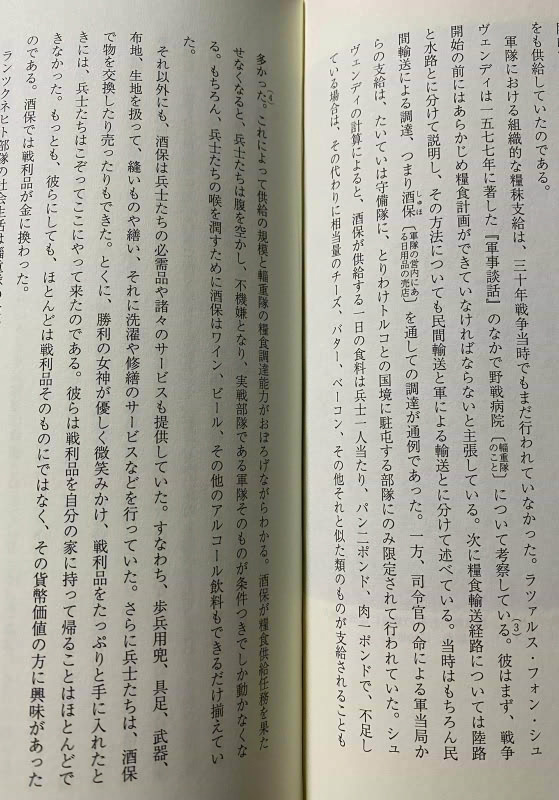 をも供給していたのである。
軍隊における組織的な糧秣支給は、三十年戦争当時でもまだ行われていなかった。ラツァルス・フォン・シュ
ヴェンディは一五七七年に著した『軍事談話』のなかで野戦病院〔輜重隊のこと〕について考察している。(3)彼はまず、戦争
開始の前にはあらかじめ糧食計画ができていなければならないと主張している。次に糧食輸送経路については陸路
と水路とに分けて説明し、その方法についても民間輸送と軍による輸送とに分けて述べている。当時はもちろん民
間輸送による調達、つまり酒保〔軍隊の営内にある日用品の売店〕を通しての調達が通例であった。一方、司令官の命による軍当局か
らの支給は、たいていは守備隊に、とりわけトルコとの国境に駐屯する部隊にのみ限定されて行われていた。シュ
ヴェンディの計算によると、酒保が供給する一日の食料は兵士一人当たり、パン二ポンド、肉一ポンドで、不足し
ている場合は、その代わりに相当量のチーズ、バター、ベーコン、その他それと似た類のものが支給されることも
多かった。(4)これによって供給の規模と輜重隊の糧食調達能力がおぼろげながらわかる。酒保が糧食供給任務を果た
せなくなると、兵士たちは腹を空かし、不機嫌となり、実戦部隊である軍隊そのものが条件つきでしか動かなくな
る。もちろん、兵士たちの喉を潤すために酒保はワイン、ビール、その他のアルコール飲料もできるだけ揃えてい
た。
それ以外にも、酒保は兵士たちの必需品や諸々のサービスも提供していた。すなわち、歩兵用兜、具足、武器、
布地、生地を扱って、縫いものや繕い、それに洗濯や修繕のサービスなどを行っていた。さらに兵士たちは、酒保
で物を交換したり売ったりもできた。とくに、勝利の女神が優しく微笑みかけ、戦利品をたっぷりと手に入れたと
きには、兵士たちはこぞってここにやって来たのである。彼らは戦利品を自分の家に持って帰ることはほとんどで
きなかった。もっとも、彼らにしても、ほとんどは戦利品そのものにではなく、その貨幣価値の方に興味があった
のである。酒保では戦利品が金に換わった。
ランツクネヒト部隊の社会生活は輜重隊